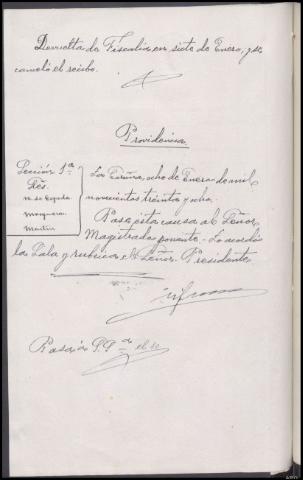 Devuelta de Fiscalia en siete de Enero, y se
canceló el recibo.
Providencia
Sección 1ª
Sres.
La Coruña, ocho de Enero de mil
novecientos treinta y ocho.
Pase esta causa al Señor
Magistrado ponente.- Lo acordó
la Sala y rubrica el Señor Presidente
Mosquera.
Martin
Pasa a